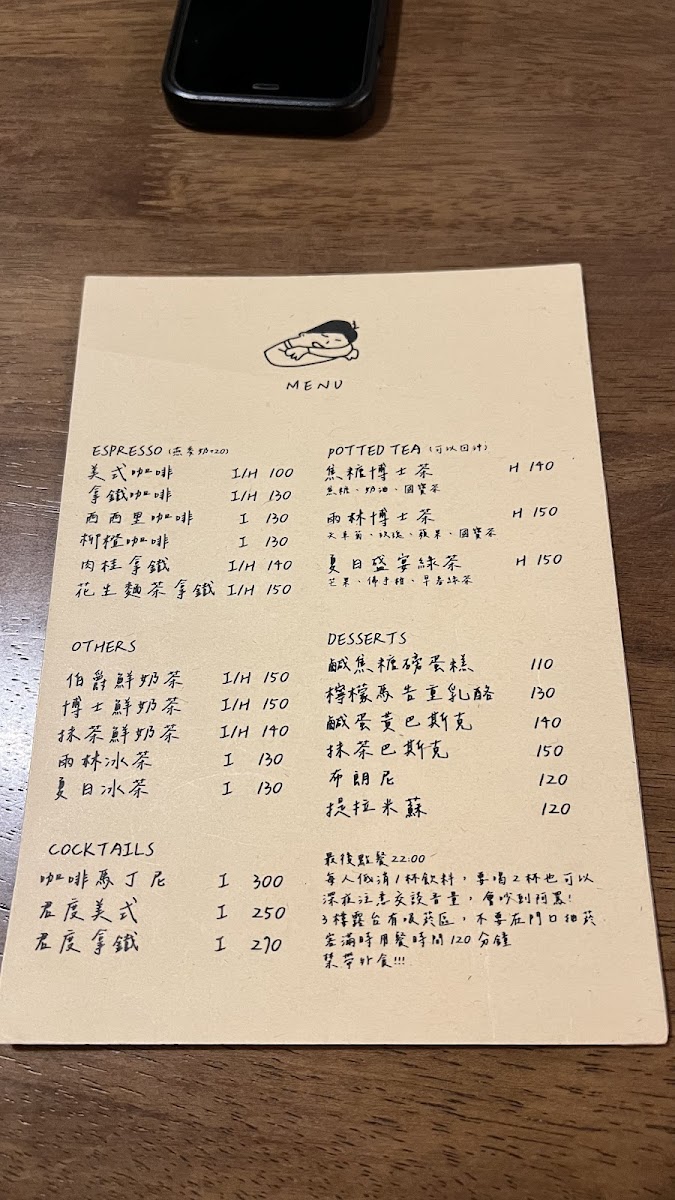 MENU
ESPRESSO (燕麥奶+20)
美式咖啡 I/H 100
拿鐵咖啡 I/H 130
西西里咖啡 I 130
柳橙咖啡 I 130
肉桂拿鐵 I/H 140
花生麵茶拿鐵 I/H 150
OTHERS
伯爵鮮奶茶 I/H 150
博士鮮奶茶 I/H 150
抹茶鮮奶茶 I/H 140
雨林冰茶 I 130
夏日冰茶 I 130
COCKTAILS
咖啡馬丁尼 I 300
君度美式 I 250
君度拿鐵 I 270
POTTED TEA (可以回沖)
焦糖博士茶 H 140
焦糖、奶油、國寶茶
雨林博士茶 H 150
火車前、玫瑰、蘋果、國寶茶
夏日盛宴綠茶 H 150
芒果、佛手柑、早春綠茶
DESSERTS
鹹焦糖磅蛋糕 110
檸檬馬告重乳酪 130
鹹蛋黃巴斯克 140
抹茶巴斯克 150
布朗尼 120
提拉米蘇 120
最後點餐22:00
每人低消1杯飲料，要喝2杯也可以
深夜注意交談音量，會吵到阿嬤!
3樓露台有吸菸區，不要在門口抽菸
客滿時用餐時間120分鐘
禁帶外食!!!